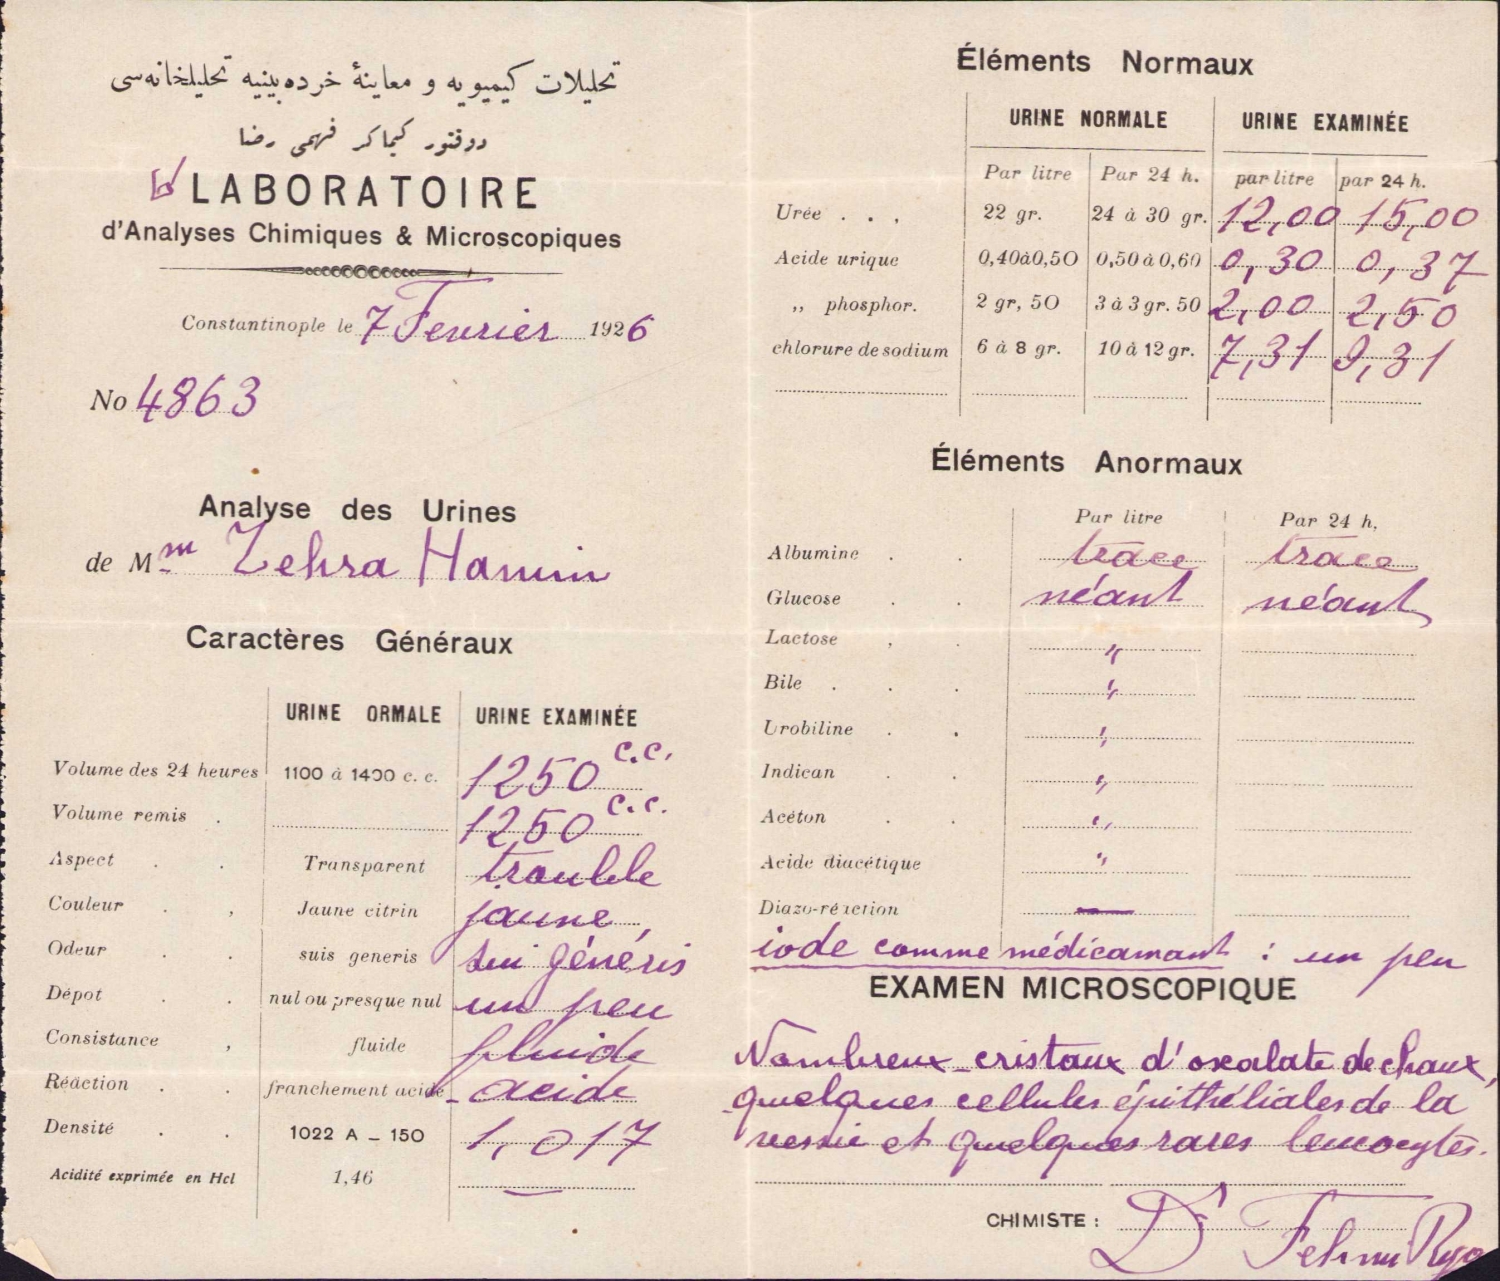 تحليلات كيميويه و معاينۀ خرده‌بينيه تحليلخانه‌سى
دوقتور كيماكر فهمى رضا
LABORATOIRE
d'Analyses Chimiques & Microscopiques
Constantinople le 7 Fevrier 1926
No 4863
Analyse des Urines
de Mm Zehra Hanım
Caractères Généraux
URINE ORMALE URINE EXAMINÉE
Volume des 24 heures 1100 à 1400 c. c. 1250 c.c.
Volume remis . 1250 c.c.
Aspect . . Transparent trouble
Couleur . , Jaune citrin jaune,
Odeur . . suis generis sui généris
Dépot . . nul ou presque nul un peu
Consistance , fluide fluide
Réaction . . franchement acide acide
Densité . . 1022 A – 150 1,017
Acidité exprimée en Hcl 1,46 —
Éléments Normaux
URINE NORMALE URINE EXAMINÉE
Par litre Par 24 h. par litre par 24 h.
Urée . . , 22 gr. 24 à 30 gr. 12,00 15,00
Acide urique 0,40à0,50 0,50 à 0,60 0,30 0,37
„ phosphor. 2 gr, 50 3 à 3 gr. 50 2,00 2,50
chlorure de sodium 6 à 8 gr. 10 à 12 gr. 7,31 9,31
Éléments Anormaux
Par litre Par 24 h,
Albumine . . trace trace
Glucose . . néant néant
Lactose , . "
Bile . . . "
Urobiline . . "
Indican . . "
Acéton . . "
Acide diacétique "
Diazo-réaction —
iode comme médicamant : un peu
EXAMEN MICROSCOPIQUE
Nombreux cristaux d'oxalate de chaux,
quelques cellules épithéliales de la
vessie et quelques rares leucocytes.
CHIMISTE : Dr Fehmi Riza